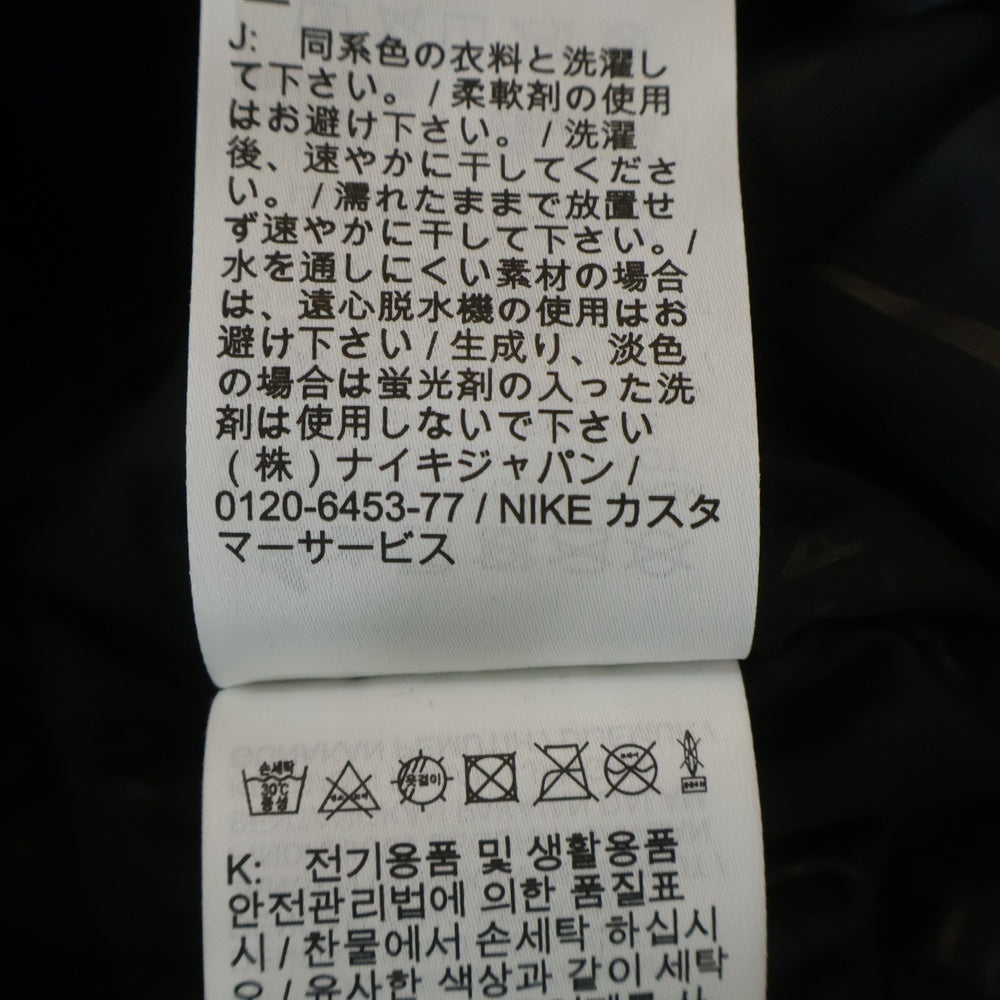 J: 同系色の衣料と洗濯し
て下さい。 / 柔軟剤の使用
はお避け下さい。 / 洗濯
後、速やかに干してくださ
い。 / 濡れたままで放置せ
ず速やかに干して下さい。 /
水を通しにくい素材の場合
は、遠心脱水機の使用はお
避け下さい / 生成り、淡色
の場合は蛍光剤の入った洗
剤は使用しないで下さい
(株)ナイキジャパン /
0120-6453-77 / NIKE カスタ
マーサービス
손세탁 30℃ 중성 옷걸이
K: 전기용품 및 생활용품
안전관리법에 의한 품질표
시 / 찬물에서 손세탁 하십시
오 / 유사한 색상과 같이 세탁